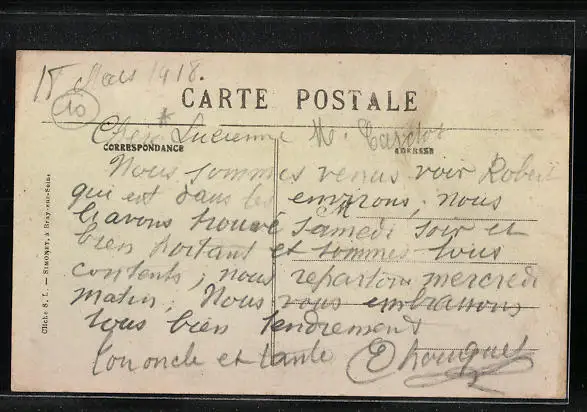 18 Mars 1918.
10
CARTE POSTALE
CORRESPONDANCE
ADRESSE
Chère Lucienne
Nous sommes venus voir Robert
qui est dans les environs, nous
l'avons trouvé samedi soir et
bien portant et sommes tous
contents, nous repartons mercredi
matin. Nous vous embrassons
tous bien tendrement
ton oncle et tante
M
Cliché S. L. — SIMONET, à Bray-sur-Seine